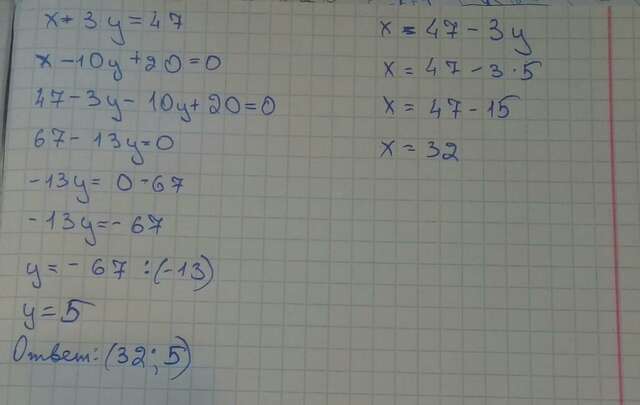 x + 3y = 47
x - 10y + 20 = 0
47 - 3y - 10y + 20 = 0
67 - 13y = 0
-13y = 0 - 67
-13y = - 67
y = - 67 : (-13)
y = 5
Ответ: (32; 5)
x = 47 - 3y
x = 47 - 3 · 5
x = 47 - 15
x = 32